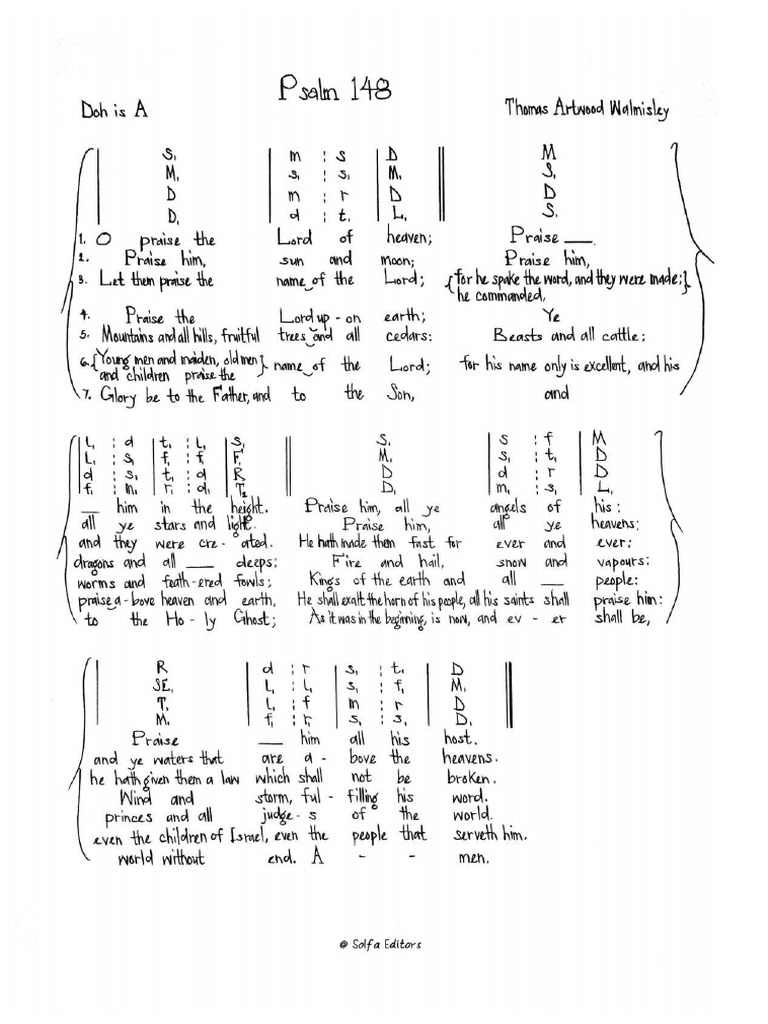 Psalm 148
Doh is A Thomas Artwood Walmisley
S, | m : s | D || M
M, | s, : s, | M, S,
D | m : r | D D
D, | d : t, | L, S,
1. O praise the Lord of heaven; Praise __.
2. Praise him, sun and moon; Praise him,
3. Let them praise the name of the Lord; {for he spake the word, and they were made;}
he commanded,
4. Praise the Lord up-on earth; Ye
5. Mountains and all hills, fruitful trees and all cedars: Beasts and all cattle;
6. {Young men and maiden, old men} name of the Lord; for his name only is excellent, and his
and children praise the
7. Glory be to the Father, and to the Son, and
L, : d | t, : L, | S, || S, | s : f | M
L, : s, | f, : f, | F, M, | s, : t, | D
d : s, | t, : d | R D | d : r | D
f, : m, | r, : d, | T₂ D, | m, : s, | L,
__ him in the height. Praise him, all ye angels of his:
all ye stars and light. Praise him, all ye heavens:
and they were cre-ated. He hath made them fast for ever and ever:
dragons and all __ deeps; Fire and hail, snow and vapours:
worms and feath-ered fowls; Kings of the earth and all __ people:
praise a-bove heaven and earth, He shall exalt the horn of his people, all his saints shall praise him:
to the Ho-ly Ghost; As it was in the beginning, is now, and ev-er shall be,
R | d : r | s, : t, | D ||
SE, | L, : L, | s, : f, | M,
T, | L, : f | m : r | D
M, | f, : r, | s, : s, | D,
Praise __ him all his host.
and ye waters that are a-bove the heavens.
he hath given them a law which shall not be broken.
Wind and storm, ful-filling his word.
princes and all judge-s of the world.
even the children of Israel, even the people that serveth him.
world without end. A - - men.
@ Solfa Editors